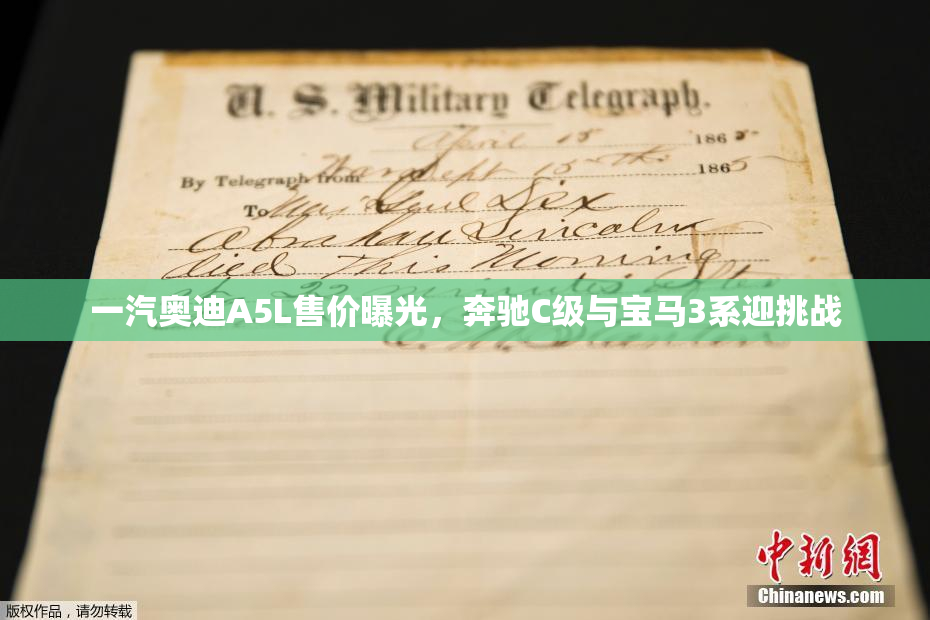 U. S. Military Telegraph.
April 15 1865
By Telegraph from War Dept 15th 1865
To Maj Genl Dix
Abraham Lincoln
died This Morning
at 22 minutes after
一汽奥迪A5L售价曝光，奔驰C级与宝马3系迎挑战
E. M. Stanton
中新网
Chinanews.com
版权作品，请勿转载